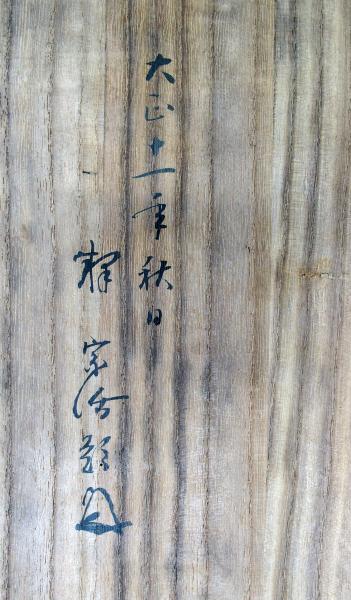 大正十一年秋日
釋 宗活題